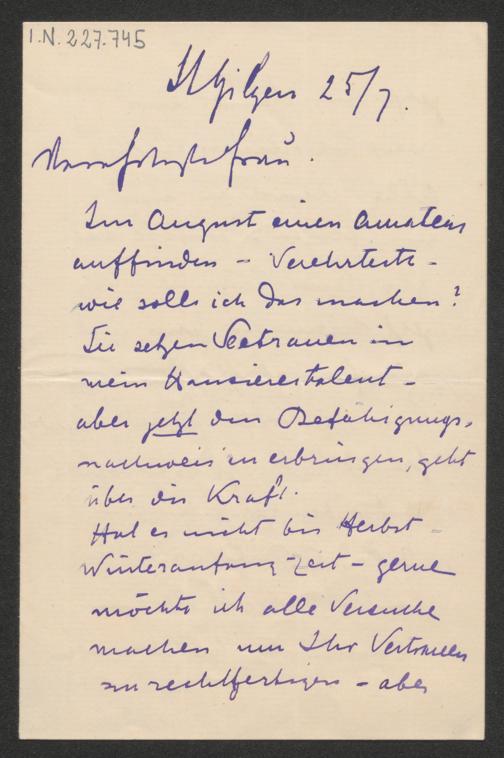 I.N. 227.745
St Gilgen 25/7.
Verehrteste Frau.
Im August einen Amateur
auffinden – Verehrteste –
wie soll ich das machen?
Sie setzen Vertrauen in
mein Hausierertalent –
aber jetzt den Befähigungs-
nachweis zu erbringen, geht
über die Kraft.
Hat es nicht bis Herbst –
Winteranfang Zeit – gerne
möchte ich alle Versuche
machen um Ihr Vertrauen
zu rechtfertigen – aber